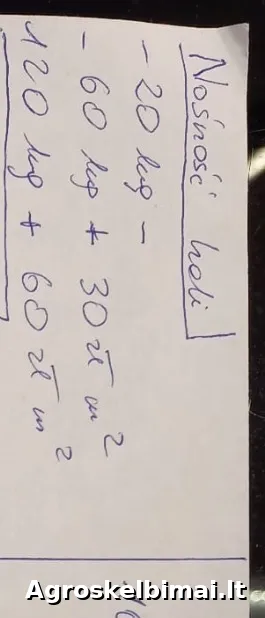 Nośność holi
- 20 kg -
- 60 kg + 30 zł m²
120 kg + 60 zł m²
Agroskelbimai.lt